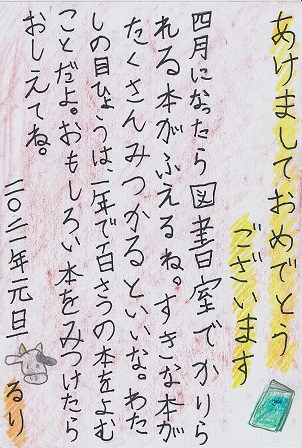 あけましておめでとう
ございます
四月になったら図書室でかりら
れる本がふえるね。すきな本が
たくさんみつかるといいな。わた
しの目ひょうは、一年で百さつの本をよむ
ことだよ。おもしろい本をみつけたら
おしえてね。
二〇二一年元旦
るり